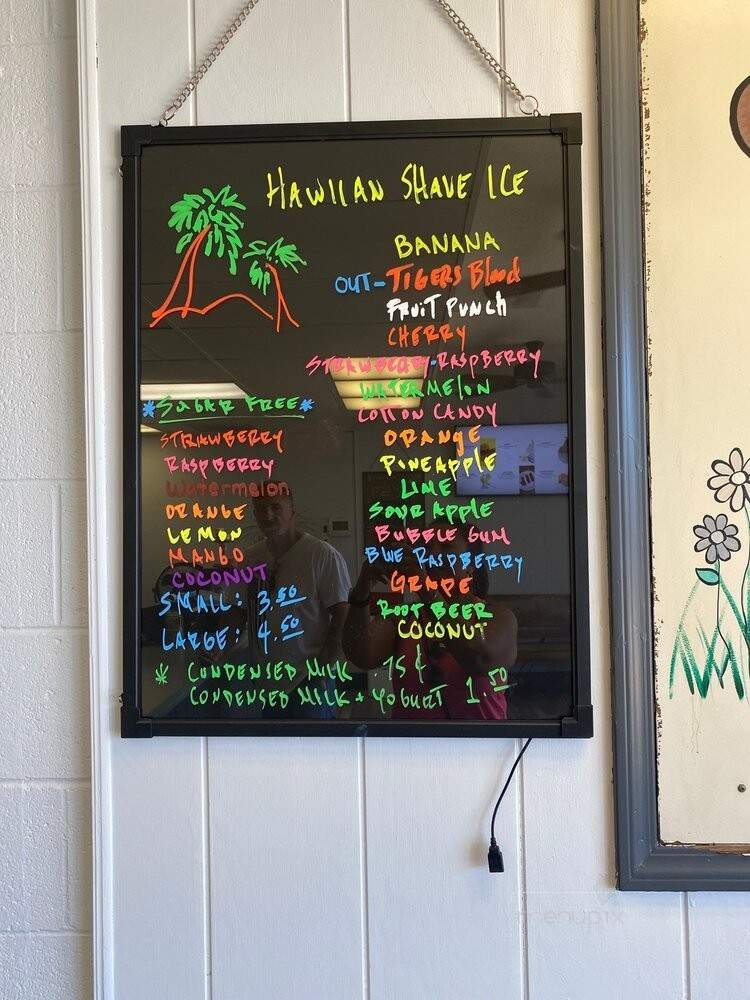 HAWIIAN SHAVE ICE
BANANA
OUT-TIGERS Blood
FRUIT PUNCH
CHERRY
STRAWBERRY-RASPBERRY
WATERMELON
COTTON CANDY
ORANGE
PINEAPPLE
LIME
SOUR APPLE
BUBBLE GUM
BLUE RASPBERRY
GRAPE
ROOT BEER
COCONUT
*SUGAR FREE*
STRAWBERRY
RASPBERRY
Watermelon
ORANGE
LEMON
MANGO
COCONUT
SMALL: 3.50
LARGE: 4.50
* CONDENSED MILK .75¢
CONDENSED MILK + YOGURT 1.50
menupix